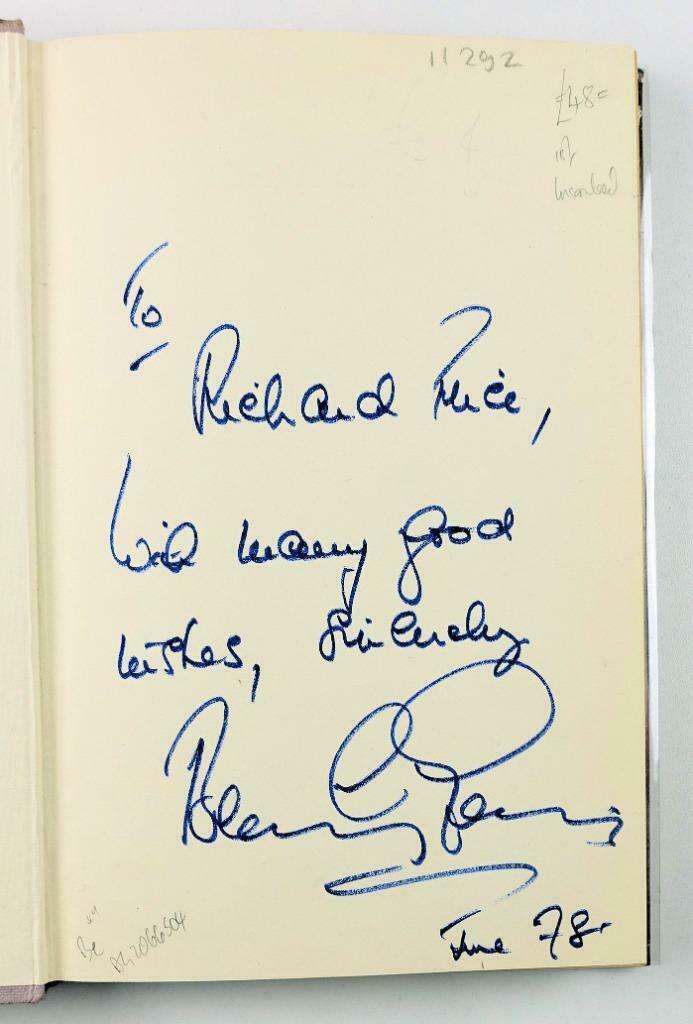 11292
£48=
1st
inscribed
To
Richard Price,
With many good
wishes, Sincerely
June 78.